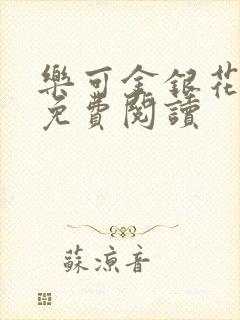 樂可金銀花
免費閱讀
蘇涼音